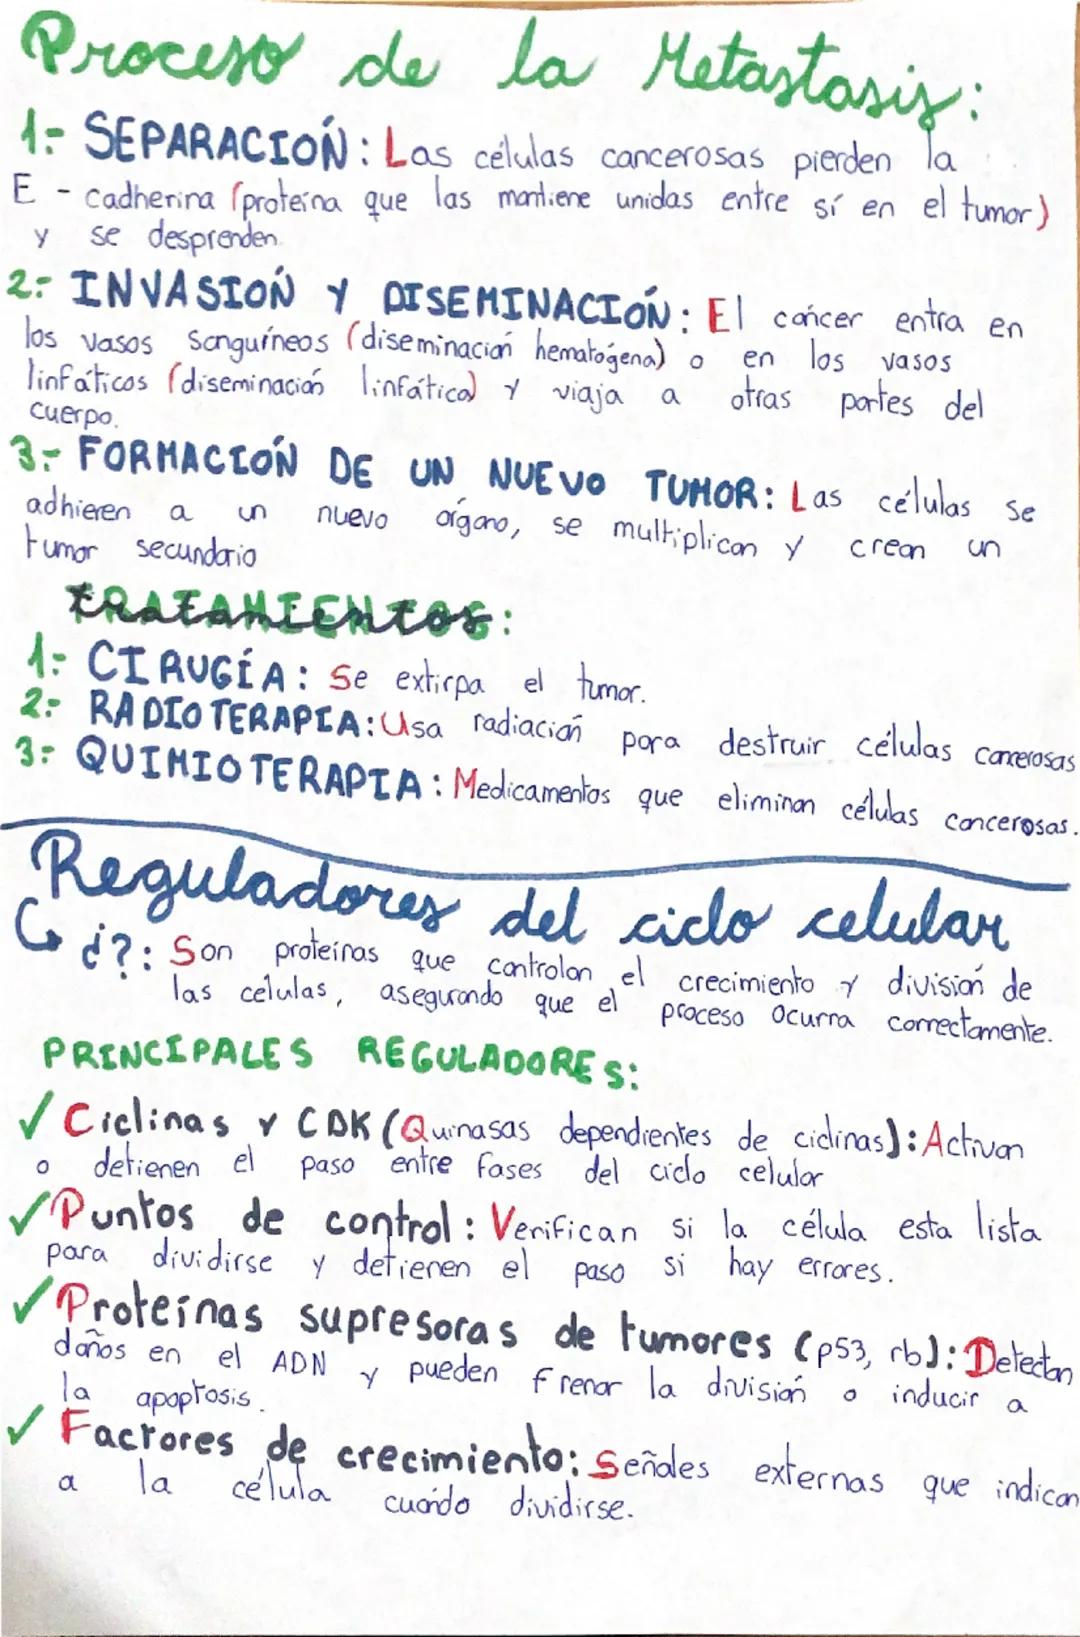 Proceso de la Metastasis:
1:- SEPARACIÓN: Las células cancerosas pierden la
E - cadherina (proteína que las mantiene unidas entre sí en el tumor)
y se desprenden.
2:- INVASIÓN Y DISEMINACIÓN: El cáncer entra en
los vasos sanguíneos (diseminación hematógena) o en los vasos
linfáticos (diseminación linfática) y viaja a otras partes del
cuerpo.
3:- FORMACIÓN DE UN NUEVO TUMOR: Las células se
adhieren a un nuevo órgano, se multiplican y crean un
tumor secundario
TRATAMIENTOS:
1:- CIRUGÍA: Se extirpa el tumor.
2:- RADIOTERAPIA: Usa radiación para destruir células cancerosas
3:- QUIMIOTERAPIA: Medicamentos que eliminan células cancerosas.
Reguladores del ciclo celular
¿?: Son proteínas que controlan el crecimiento y división de
las células, asegurando que el proceso ocurra correctamente.
PRINCIPALES REGULADORES:
✓ Ciclinas y CDK (Quinasas dependientes de ciclinas): Activan
o detienen el paso entre fases del ciclo celular
✓ Puntos de control: Verifican si la célula esta lista
para dividirse y detienen el paso si hay errores.
✓ Proteínas supresoras de tumores (p53, rb): Detectan
daños en el ADN y pueden frenar la división o inducir a
la apoptosis.
✓ Factores de crecimiento: Señales externas que indican
a la célula cuándo dividirse.